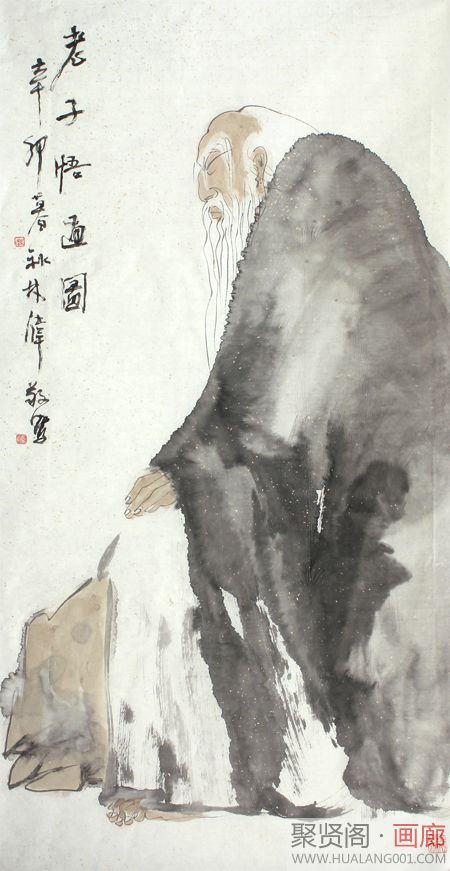 老子悟道圖
辛卯暮秋林偉敬寫
聚贤阁·画廊
WWW.HUALANG001.COM